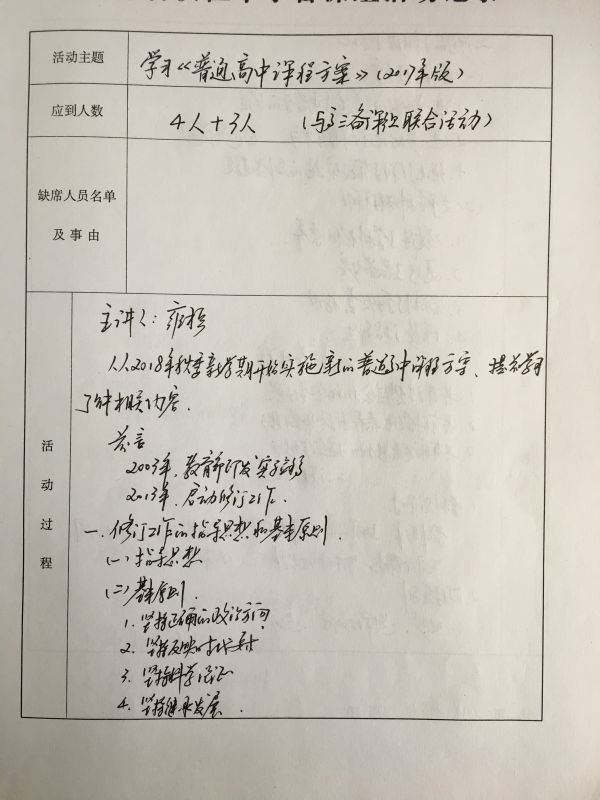 活动主题
学习《普通高中课程方案》(2017年版)
应到人数
4人+3人 (与高三备课组联合活动)
缺席人员名单
及事由
活动过程
主讲人:
从2018年秋季新学期开始实施新的普通高中课程方案、提前学习
了解相关内容.
前言
2003年,教育部印发实验稿
2013年,启动修订工作.
一.修订工作的指导思想和基本原则.
(一)指导思想
(二)基本原则.
1. 坚持正确的政治方向
2. 坚持反映时代要求
3. 坚持科学论证
4. 坚持继承发展.